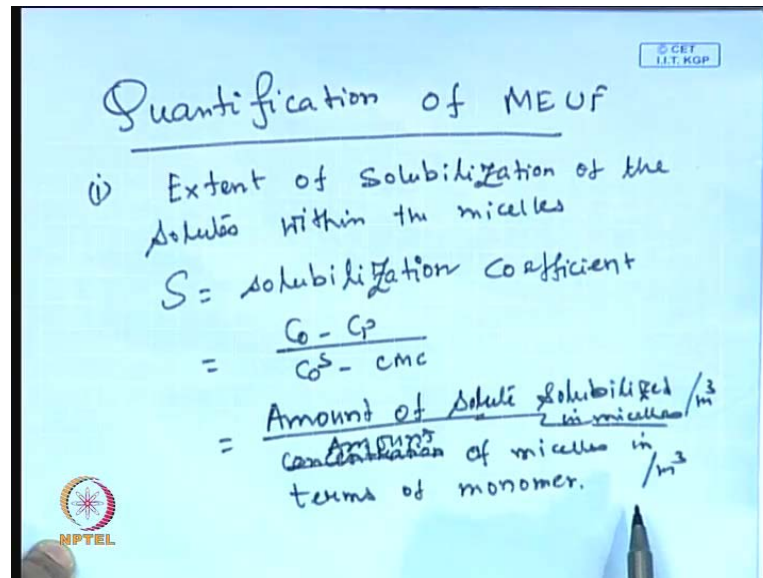 © CET
I.I.T. KGP
Quantification of MEUF
(i) Extent of Solubilization of the
solutes within the micelles
S = solubilization coefficient
= Co - Cp
Cos - cmc
= Amount of solute solubilized in micelles /m3
Amount of micelles in
terms of monomer. /m3
NPTEL